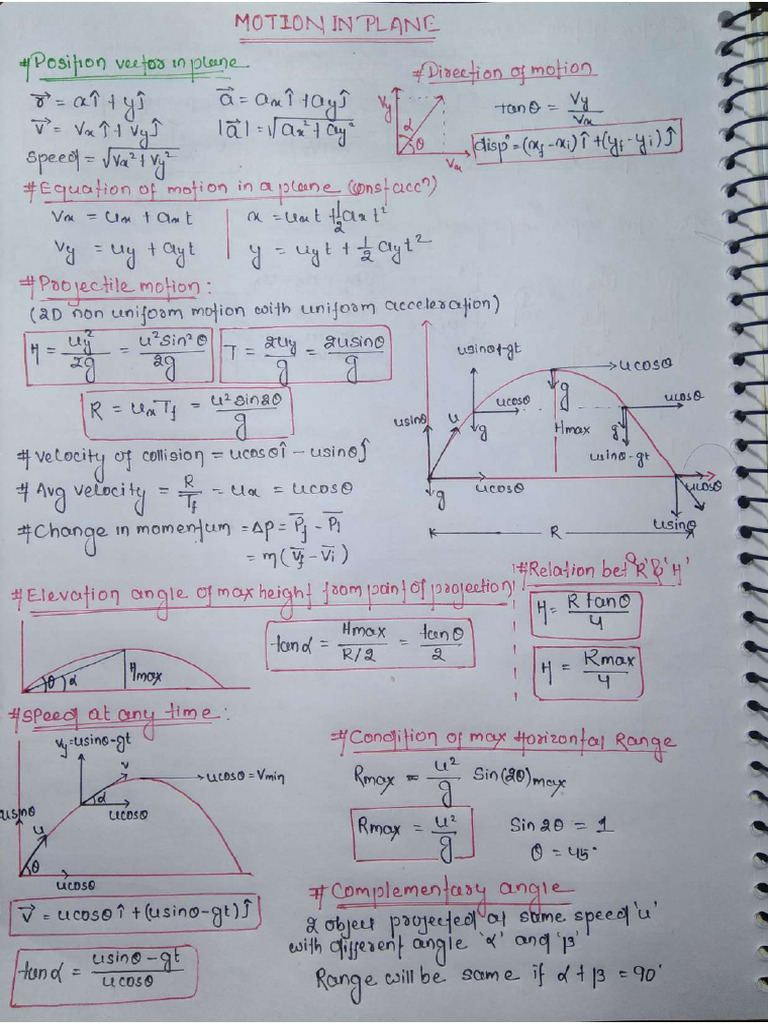 MOTION IN PLANE
#Position vector in plane
r⃗ = xî + yĵ
a⃗ = axî + ayĵ
v⃗ = vxî + vyĵ
|a⃗| = √(ax² + ay²)
speed = √(vx² + vy²)
#Direction of motion
Vy
α
θ
Vx
tanθ = Vy/Vx
dispⁿ = (xf - xi)î + (yf - yi)ĵ
#Equation of motion in a plane (const accⁿ)
Vx = ux + axt
x = uxt + 1/2 axt²
Vy = uy + ayt
y = uyt + 1/2 ayt²
#Projectile motion:
(2D non uniform motion with uniform acceleration)
H = uy²/2g = u²sin²θ/2g
T = 2uy/g = 2usinθ/g
R = uxTf = u²sin2θ/g
usinθ-gt
ucosθ
g
ucosθ
ucosθ
usinθ
u
g
Hmax
g
usinθ-gt
g
ucosθ
ucosθ
usinθ
R
#velocity of collision = ucosθî - usinθĵ
#Avg velocity = R/Tf = ux = ucosθ
#Change in momentum = Δp = P⃗f - P⃗i
= m(v⃗f - v⃗i)
#Elevation angle of max height from point of projection
θ
α
Hmax
tanα = Hmax/R/2 = tanθ/2
#Relation betⁿ 'R' & 'H'
H = R tanθ/4
H = Rmax/4
#Speed at any time:
Vy=usinθ-gt
v
ucosθ = Vmin
α
ucosθ
usinθ
u
θ
ucosθ
v⃗ = ucosθî + (usinθ-gt)ĵ
tanα = usinθ-gt/ucosθ
#Condition of max Horizontal Range
Rmax = u²/g Sin(2θ)max
Rmax = u²/g
Sin2θ = 1
θ = 45°
#Complementary angle
2 object projected at same speed 'u'
with different angle 'α' and 'β'
Range will be same if α + β = 90°